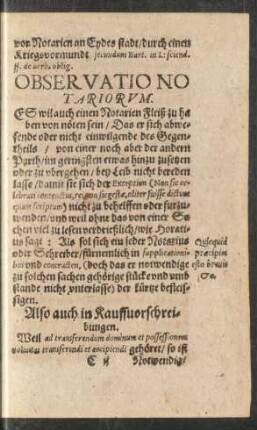 vor Notarien an Eydes stadt/durch einen
Kriegsvormundt secundum Bart. in L: sciend.
ff. de verb. oblig.
OBSERVATIO NO
TARIORVM.
ES wil auch einen Notarien Fleiß zu ha
ben von nöten sein / Das er sich abwe-
sende oder nicht einwilgende des Gegen-
theils / von einer noch aber der andern
Parth/im geringsten etwas hinzu zusetzen
oder zu vbergehen / bey Leib nicht bereden
lasse/damit sie sich der Exception (Non sic ce-
lebratum, aliter fuisse dictum
quam scriptum) nicht zu behelffen oder fürzu-
wenden/vnd weil ohne das von einer Sa-
chen viel zu lesen verdrießlich/wie Horati-
us sagt: Als sol sich ein jeder Notarius
oder Schreiber/fürnemlich in supplicationi-
bus vnd contracten, (doch das er notwendige
zu solchen sachen gehörige stücke vnd vmb
stande nicht vnterlasse) der kürtze befleis-
sigen.
Quicquid
præcipies
esto brevis
Also auch in Kauffuorschrei-
bungen.
Weil ad transferendum dominium et possessionem
transferendi et accipiendi gehöret/ so ist
C ij Notwendig/